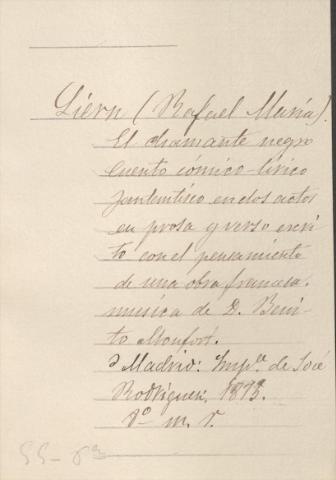 Liern (Rafael María).
El diamante negro
Cuento cómico-lírico
fantastico en dos actos
en prosa y verso escri
to con el pensamiento
de una obra francesa.
musica de D. Beni
to Monfort.
Madrid: Impta. de José
Rodriguez, 1873.
8º m. r.